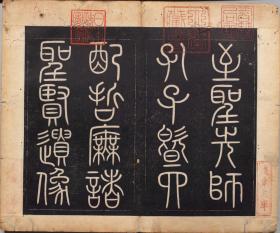 至聖先師
孔子暨四
配哲廡諸
聖賢遺像